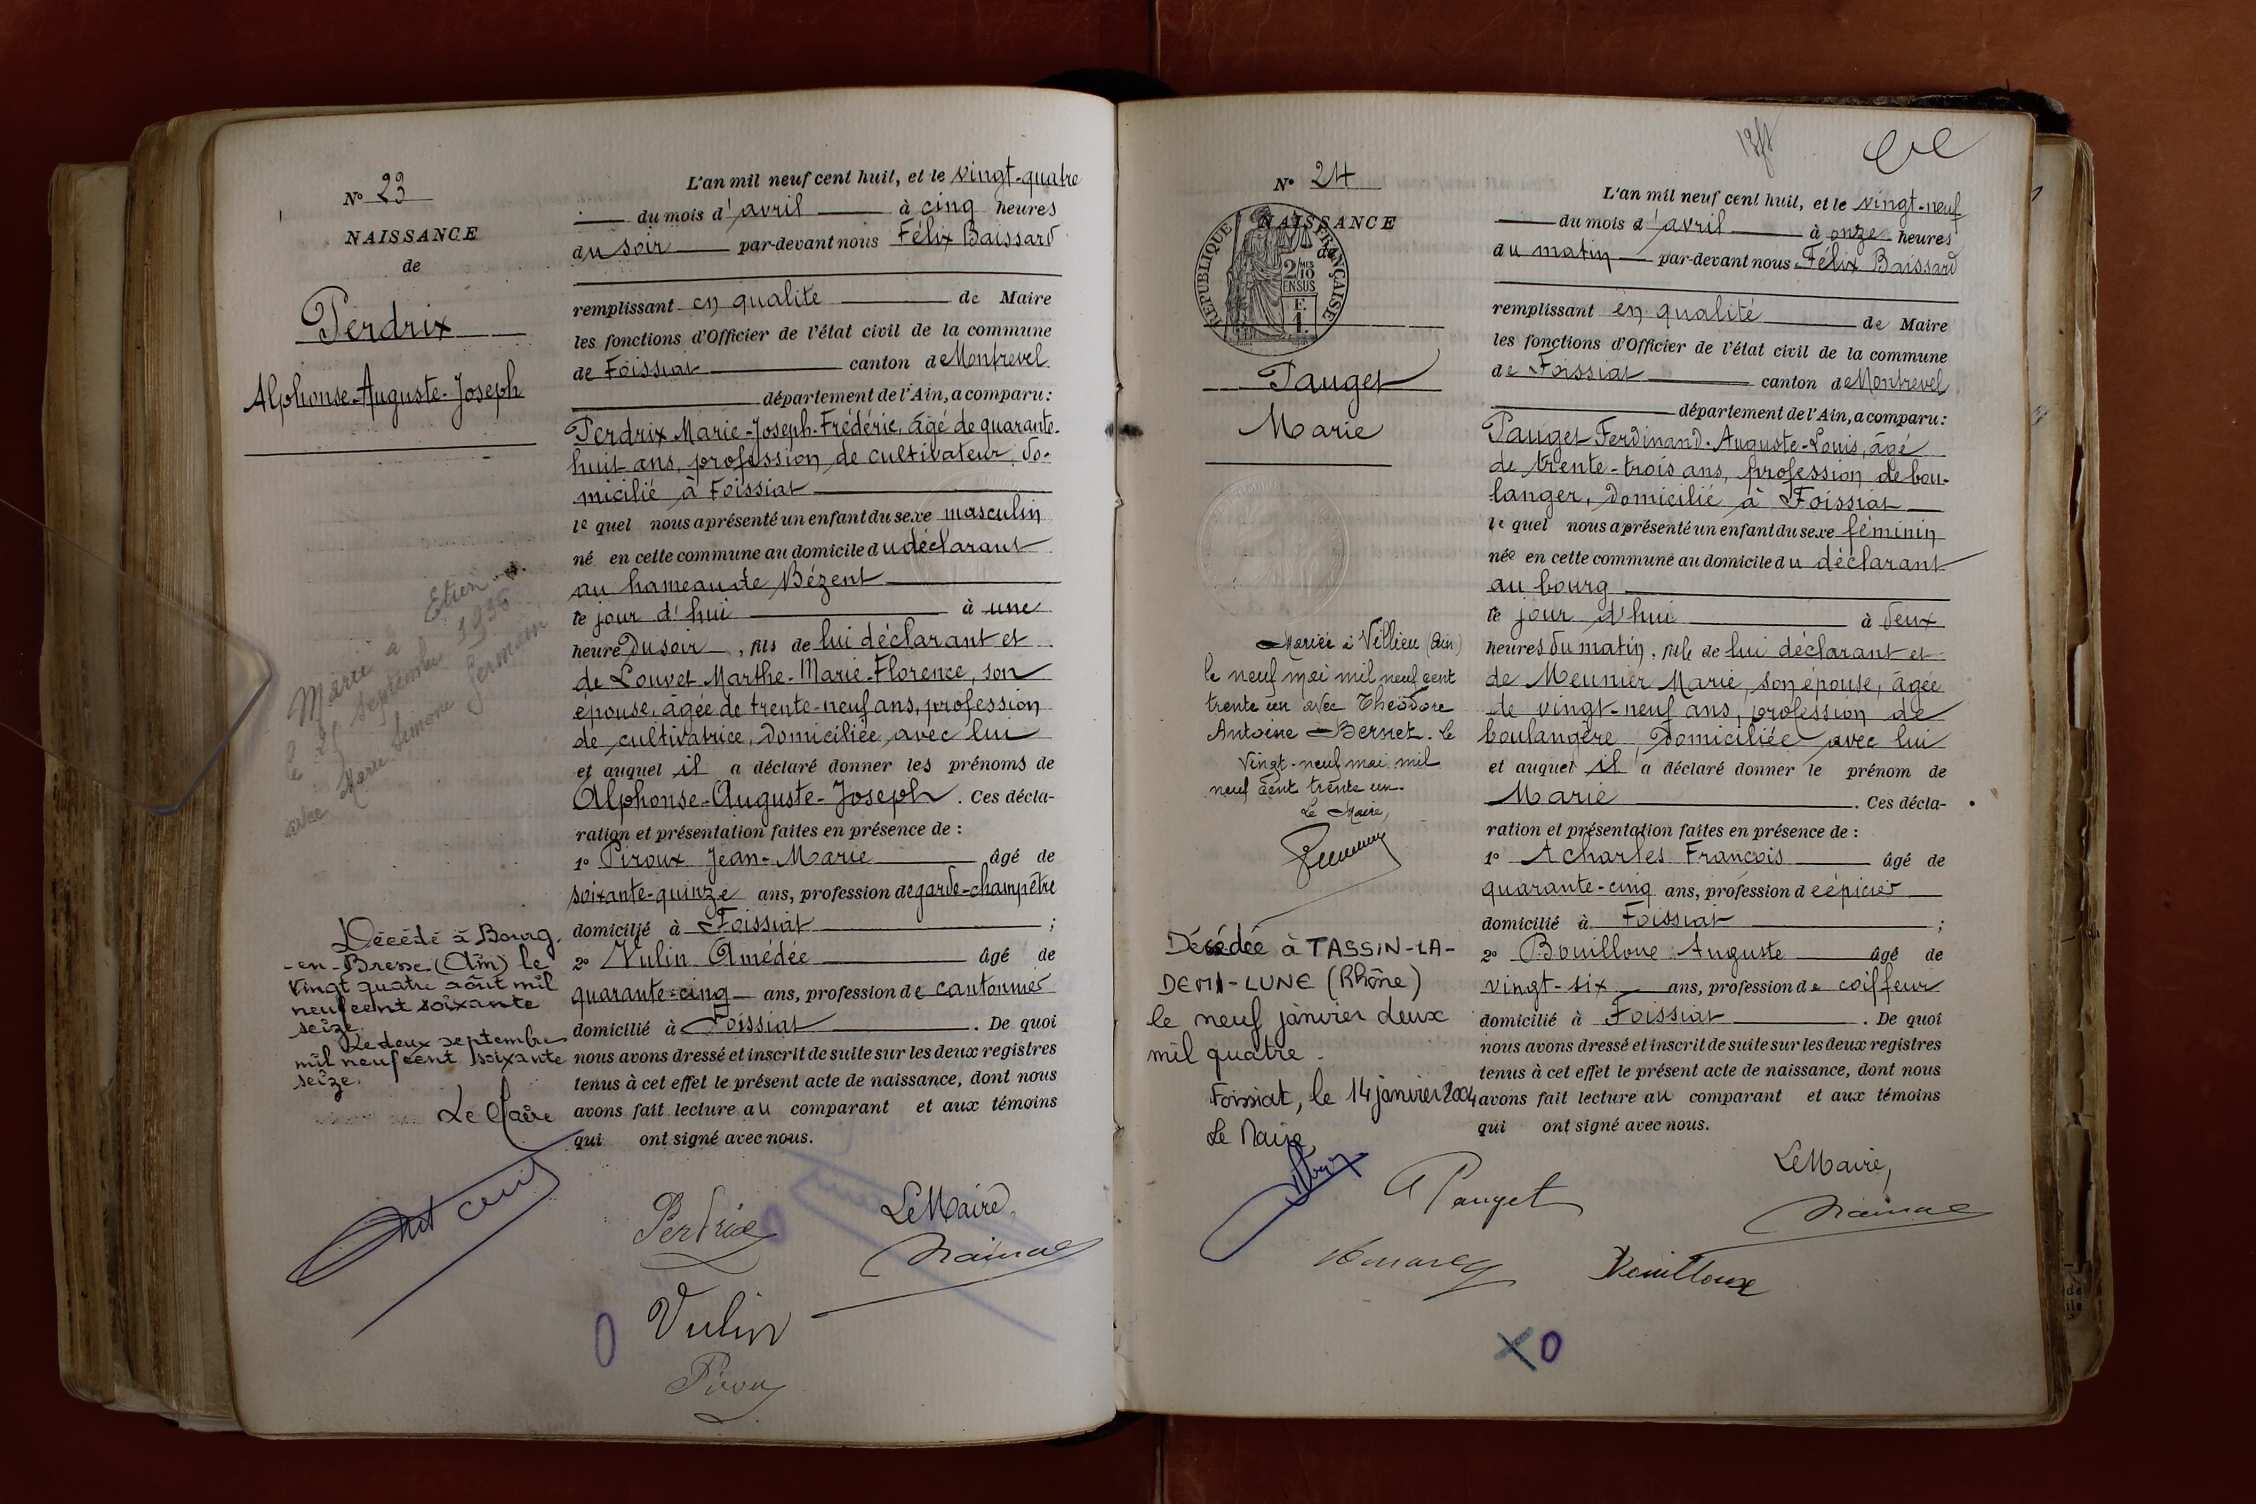 N° 23
NAISSANCE
de
Perdrix
Alphonse-Auguste-Joseph
L'an mil neuf cent huit, et le vingt-quatre
du mois d'avril à cinq heures
du soir par-devant nous Félix Baissard
remplissant en qualité de Maire
les fonctions d'Officier de l'état civil de la commune
de Foissiat canton de Montrevel
département de l'Ain, a comparu :
Perdrix Marie-Joseph-Frédéric, âgé de quarante-
huit ans, profession de cultivateur, do-
micilié à Foissiat
lequel nous a présenté un enfant du sexe masculin
né en cette commune au domicile du déclarant
au hameau de Bézent
le jour d'hui à une
heure du soir, fils de lui déclarant et
de Louvet Marthe-Marie-Florence, son
épouse, âgée de trente-neuf ans, profession
de cultivatrice, domiciliée avec lui
et auquel il a déclaré donner les prénoms de
Alphonse-Auguste-Joseph. Ces décla-
ration et présentation faites en présence de :
1° Piroux Jean-Marie âgé de
soixante-quinze ans, profession de garde-champêtre
domicilié à Foissiat ;
2° Vulin Amédée âgé de
quarante-cinq ans, profession de cantonnier
domicilié à Foissiat. De quoi
nous avons dressé et inscrit de suite sur les deux registres
tenus à cet effet le présent acte de naissance, dont nous
avons fait lecture au comparant et aux témoins
qui ont signé avec nous.
Marié à Etrez
le septembre 1936
avec Marie Simone Germain
Décédé à Bourg-
-en-Bresse (Ain) le
vingt quatre août mil
neuf cent soixante
seize.
Le deux septembre
mil neuf cent soixante
seize.
Le Maire
Perdrix
Le Maire,
Vulin
Piroux
N° 24
NAISSANCE
de
RÉPUBLIQUE FRANÇAISE
2/10
EN SUS
Pauget
Marie
L'an mil neuf cent huit, et le vingt-neuf
du mois d'avril à onze heures
du matin par-devant nous Félix Baissard
remplissant en qualité de Maire
les fonctions d'Officier de l'état civil de la commune
de Foissiat canton de Montrevel
département de l'Ain, a comparu :
Pauget Ferdinand-Auguste-Louis, âgé
de trente-trois ans, profession de bou-
langer, domicilié à Foissiat
lequel nous a présenté un enfant du sexe féminin
née en cette commune au domicile du déclarant
au bourg
le jour d'hui à deux
heures du matin, fille de lui déclarant et
de Meunier Marie, son épouse, âgée
de vingt-neuf ans, profession de
boulangère, domiciliée avec lui
et auquel il a déclaré donner le prénom de
Marie. Ces décla-
ration et présentation faites en présence de :
1° Acharles François âgé de
quarante-cinq ans, profession d'épicier
domicilié à Foissiat ;
2° Bouilloux Auguste âgé de
vingt-six ans, profession de coiffeur
domicilié à Foissiat. De quoi
nous avons dressé et inscrit de suite sur les deux registres
tenus à cet effet le présent acte de naissance, dont nous
avons fait lecture au comparant et aux témoins
qui ont signé avec nous.
Mariée à Villieu (Ain)
le neuf mai mil neuf cent
trente un avec Théodore
Antoine Bernet. Le
vingt-neuf mai mil
neuf cent trente un.
Le Maire,
Décédée à TASSIN-LA-
DEMI-LUNE (Rhône)
le neuf janvier deux
mil quatre.
Foissiat, le 14 janvier 2004
Le Maire
Le Maire,
A Pauget
Bouilloux